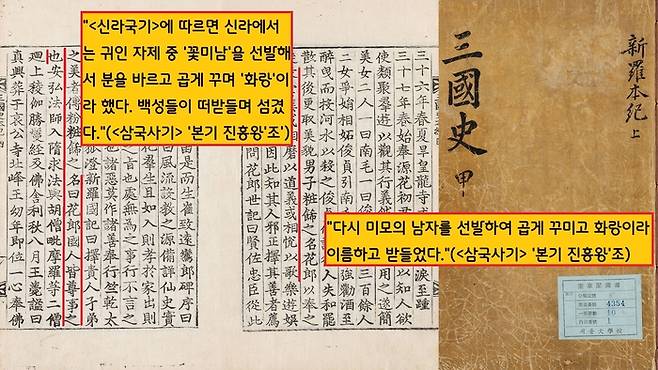 "<신라국기>에 따르면 신라에서
는 귀인 자제 중 '꽃미남'을 선발해
서 분을 바르고 곱게 꾸며 '화랑'이
라 했다. 백성들이 떠받들며 섬겼
다."(<삼국사기> '본기 진흥왕'조')
"다시 미모의 남자를 선발하여 곱게 꾸미고 화랑이라
이름하고 받들었다."(<삼국사기> '본기 진흥왕'조)
新羅本紀上
三國史 甲
4354
10
1
三十六年春夏旱皇龍寺 淚至踵
三十七年春始奉源花初君 以知人欲
使類聚羣遊以觀其行義然 用之遂簡
美女二人一曰南毛一曰俊 三百餘人
二女爭娟相妬俊貞引南毛 強勸酒至
醉曳而投河水以殺之俊貞 人失和罷
散其後更取美貌男子粧飾之名花郎以奉之
相磨以道義或相悅以歌樂遊娛
因此知其人邪正擇其善者薦
花郎世記曰賢佐忠臣從此
由是而生崔致遠鸞郎碑序曰
曰風流設教之源備詳仙史實
化羣生且如入則孝於家出則
之言也處無為之事行不言之
也諸惡莫作諸善奉行竺乾太
狐澄新羅國記曰擇貴人子弟
之美者傅粉粧飾之名曰花郎國人皆尊事之
也安弘法師入隋求法與胡僧毗摩羅等二僧
廻上稜伽勝鬘經及佛舍利秋八月王薨諡曰
真興葬于哀公寺北峰王幼年即位一心奉佛